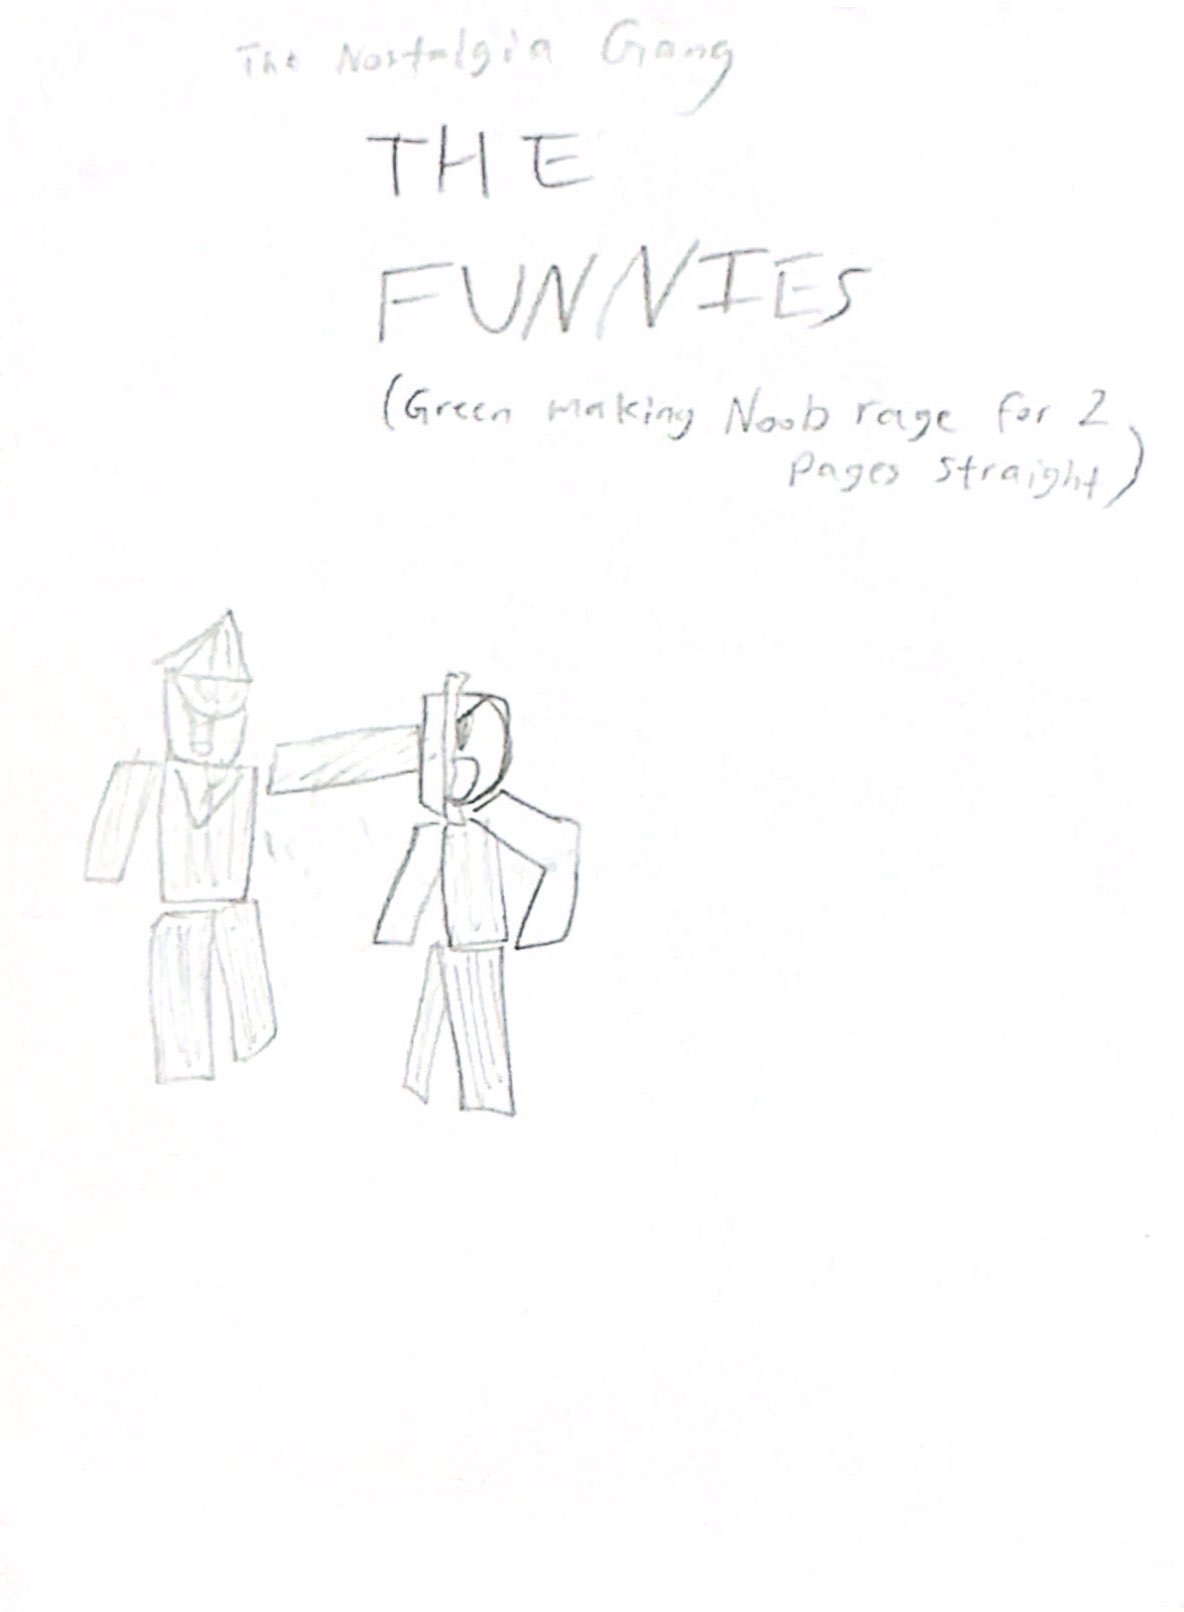 The Nostalgia Gang
THE
FUNNIES
(Green making Noob rage for 2
pages straight)